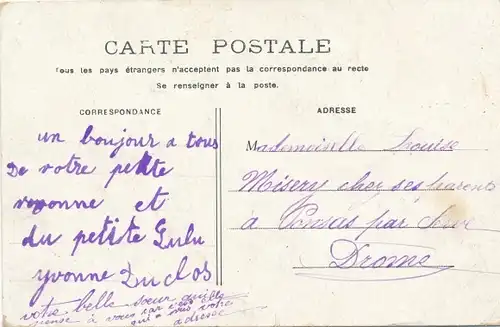 CARTE POSTALE
Tous les pays étrangers n'acceptent pas la correspondance au recto
Se renseigner à la poste.
CORRESPONDANCE
un bonjour a tous
De votre petite
yvonne et
du petite Lulu
yvonne Duclos
votre belle soeur
pense à vous
qui a mis votre
adresse
ADRESSE
Mademoiselle Louise
Misery chez ses parents
a Ponsas par Serve
Drome